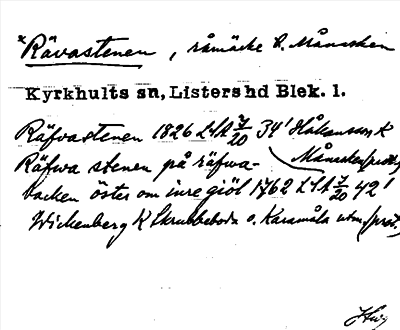 *Rävastenen, råmärke k. Månasken
Kyrkhults sn, Listers hd Blek. l.
Räfvastenen 1826 LSA 7/20 34' Håkansson, K
Räfwa stenen på räfwa- Månasken (prot.)
backen öster om inregiöl 1762 LSA 7/20 42'
Wickenberg K Skrubbeboda o. Karamåla utm. (prot.)